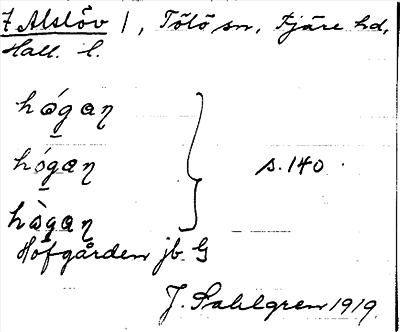 7 Alslöv 1, Tölö sn, Fjäre hd,
Hall. l.
hǿgaɳ
hógaɳ s. 140
hàgaɳ
Hofgården jb. G
J. Sahlgren 1919